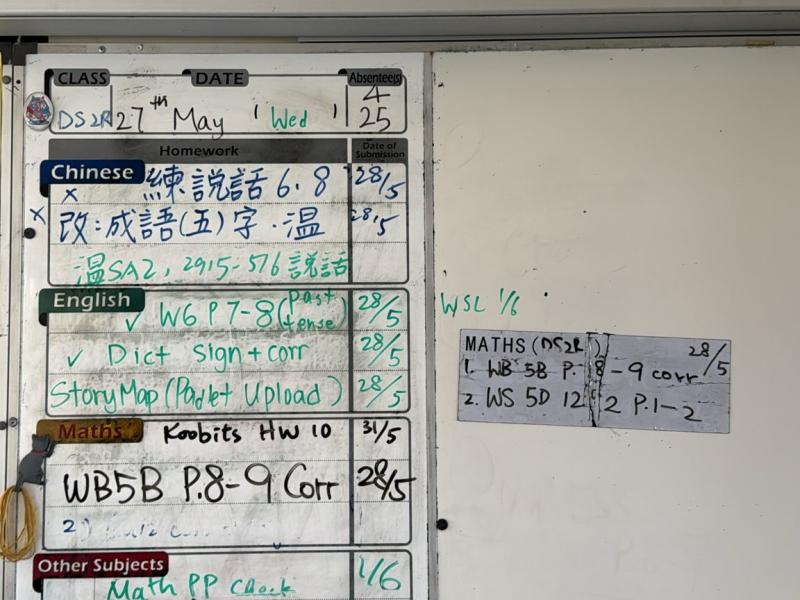 CLASS DATE Absentee(s)
DS2R 27th May ( Wed ) 4 25
Homework Date of Submission
Chinese
x 練說話 6、8 28/5
x 改:成語(五)字·溫 28/5
溫SA2, 說話
English
✓ W6 P7-8 (past tense) 28/5
✓ Dict sign + corr 28/5
Story Map (Padlet Upload) 28/5
Maths Koobits HW 10 31/5
WB5B P.8-9 Corr 28/5
2)
Other Subjects
Math PP Check 1/6
WSL 1/6
MATHS (DS2R) 28/5
1. WB 5B P. 8-9 corr
2. WS 5D 12 2 P.1-2